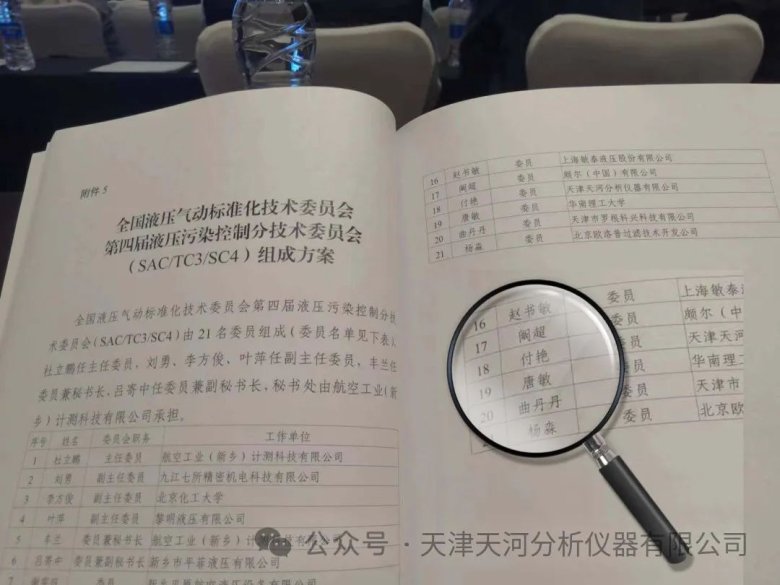 附件 5
全国液压气动标准化技术委员会
第四届液压污染控制分技术委员会
(SAC/TC3/SC4)组成方案
全国液压气动标准化技术委员会第四届液压污染控制分技
术委员会(SAC/TC3/SC4)由 21 名委员组成(委员名单见下表),
杜立鹏任主任委员,刘勇、李方俊、叶萍任副主任委员,车兰任
委员兼秘书长,吕寄中任委员兼副秘书长,秘书处由航空工业(新
乡)计测科技有限公司承担。
序号 姓名 委员会职务 工作单位
1 杜立鹏 主任委员 航空工业(新乡)计测科技有限公司
2 刘勇 副主任委员 九江七所精密机电科技有限公司
3 李方俊 副主任委员 北京化工大学
4 叶萍 副主任委员 黎明液压有限公司
5 车兰 委员兼秘书长 航空工业(新乡)计测科技有限公司
6 吕寄中 委员兼副秘书长 新乡市平菲液压有限公司
委员
16 赵书敏 委员 上海敏泰液压股份有限公司
17 阚超 委员 颇尔(中国)有限公司
18 付艳 委员 天津天河分析仪器有限公司
19 唐敏 委员 华南理工大学
20 曲丹丹 委员 天津市罗根科兴科技有限公司
21 杨淼 委员 北京欧洛普过滤技术开发公司
16 赵书敏 委员 上海敏泰液
17 阚超 委员 颇尔(中
18 付艳 委员 天津天河
19 唐敏 委员 华南理工
20 曲丹丹 委员 天津市
杨淼 委员 北京欧
公众号 · 天津天河分析仪器有限公司